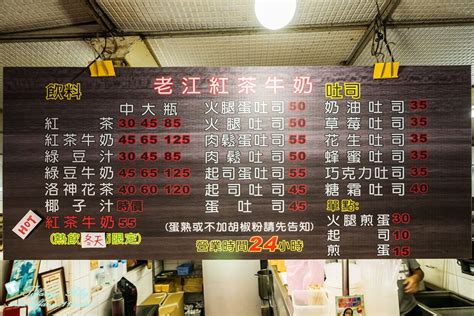 老江紅茶牛奶
飲料
中 大 瓶
紅茶 30 45 85
紅茶牛奶 45 65 125
綠豆汁 45 65 125
綠豆牛奶 45 65 125
洛神花茶 40 60 120
椰子汁 時價
紅茶牛奶 55
HOT
(熱飲冬天限定)
火腿蛋吐司 50
火腿吐司 45
肉鬆蛋吐司 50
肉鬆吐司 45
起司蛋吐司 50
起司吐司 45
蛋吐司 40
(蛋熟或不加胡椒粉請先告知)
營業時間24小時
吐司
奶油吐司 35
草莓吐司 35
花生吐司 35
蜂蜜吐司 35
巧克力吐司 35
糖霜吐司 35
單點:
火腿煎蛋 30
起司 10
煎蛋 15